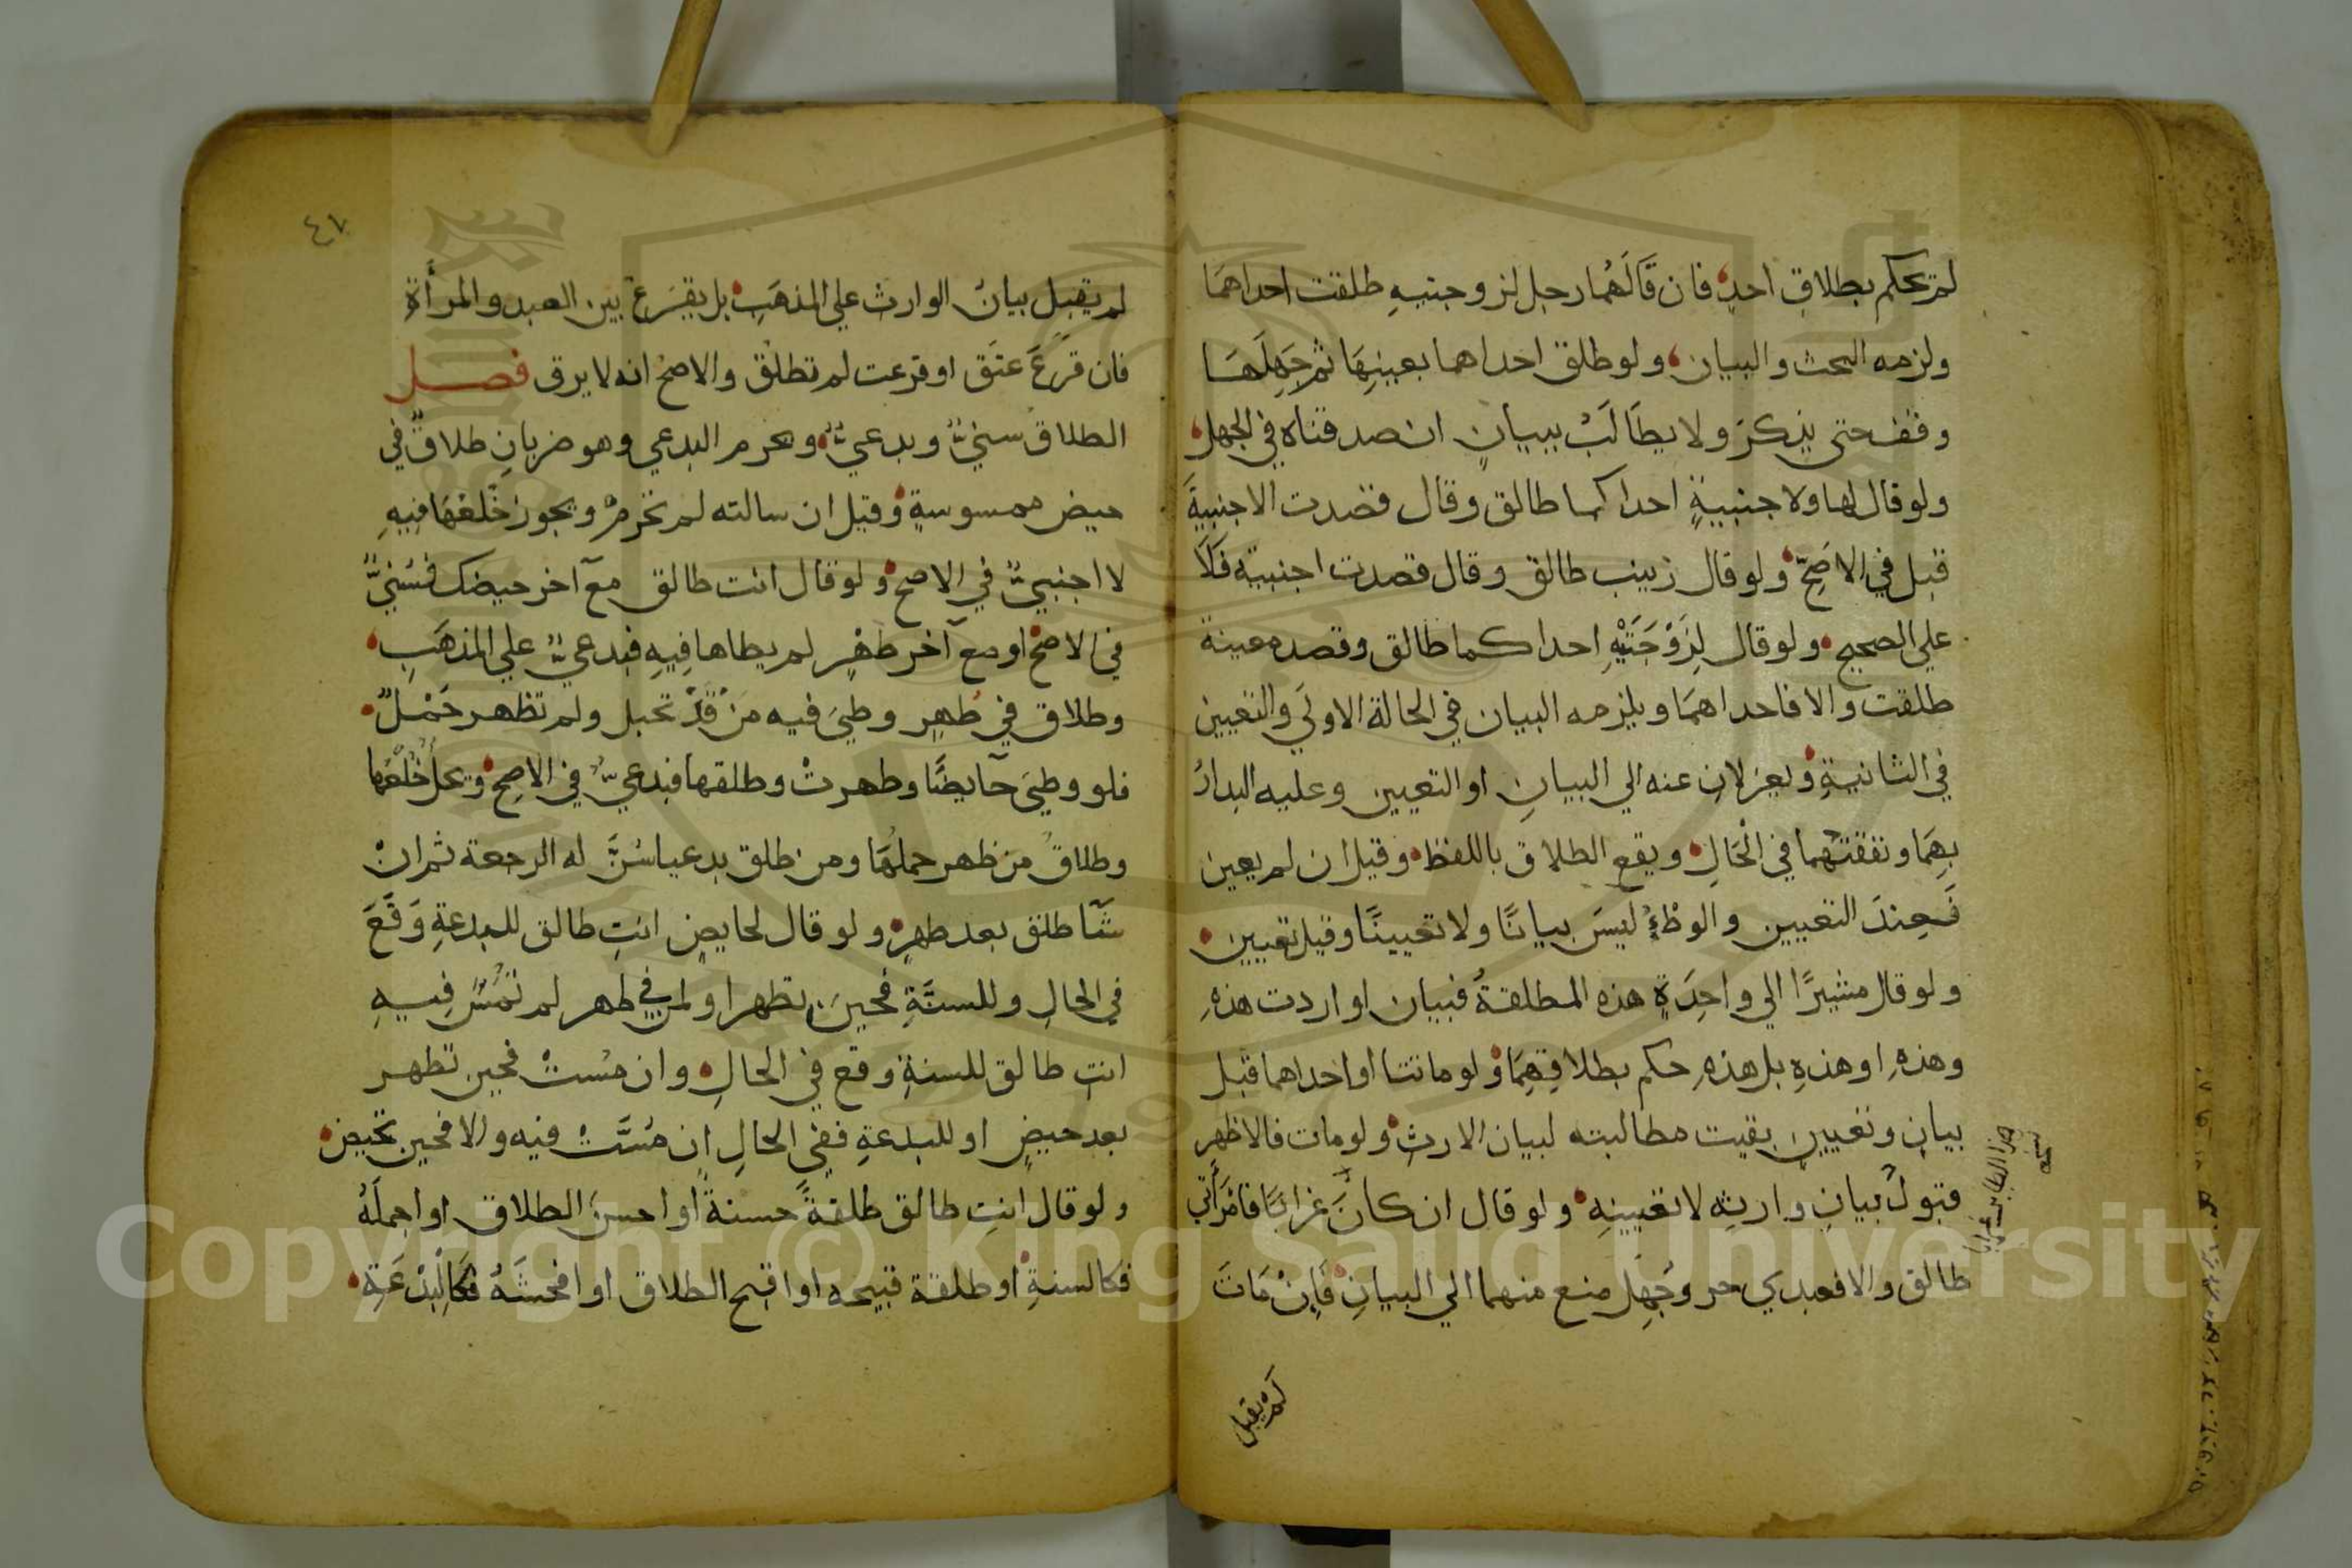 لم يحكم بطلاق احدٍ فان قَالَهُما رجل لزوجتيهِ طلقت احداهمَا
ولزمه البحث والبيان ولو طلق احداهما بعينِهَا ثم جَهِلَهَا
وقف حتى يذكرَ ولا يطَالَبْ ببيانٍ ان صدقتاه في الجهل
ولو قال لها ولاجنبيةٍ احداكما طالق وقال قصدت الاجنبيةَ
قبل في الاصَحّ ولو قال زينب طالق وقال قصدت اجنبية فَلَا
علي الصحيح ولو قال لِزَوْجَتَيْهِ احداكما طالق وقصد معينة
طلقت والا فاحداهمَا ويلزمه البيان في الحالة الاولَي والتعيين
في الثانيةِ ويعزلان عنه الي البيانِ او التعيين وعليه البدارُ
بِهِمَا ونفقتهما في الْحَالِ ويقع الطلاق باللفظ وقيل ان لم يعين
فَعِندَ التعيين والوطْءُ ليسَ بيانًا ولا تعيينًا وقيل تعيين
ولو قال مشيرًا الي واحِدَةٍ هذه المطلقةُ فبيان او اردت هذهِ
وهذهِ او هذهِ بل هذهِ حكم بطلاقِهِمَا ولو ماتتا او احداهما قبل
بيان وتعيين بقيت مطالبته لبيان الارث ولو مات فالاظهر
قبولُ بيانِ وارثِه لا تعيينِهِ ولو قال ان كانَ غرابًا فامْرَأَتي
طالق والا فعبدي حر وجُهِل منع منهما الي البيانِ فَاِنْ مَاتَ
نسخة
هذا الطاير غرابا
لَمْ يقبل
٤٧
لم يقبل بيانُ الوارث علي المذهَبِ بل يقرَع بين العبد والمرأَة
فان قرعَ عتَق او قرعت لم تطلُق والاصحُ انه لا يرق فصل
الطلاق سنيٌّ وبدعيٌّ ويحرم البدعي وهو ضربانِ طلاقٌ في
حيض ممسوسةٍ وقيل ان سالته لم تحرمْ ويجوز خُلعُهَا فيهِ
لا اجنبيٌّ في الاصح ولو قال انت طالق معَ آخر حيضك فسُنيٌّ
في الاصح او مع آخر طهْرٍ لم يطاها فِيهِ فبدعيٌّ علي المذهَبِ
وطلاق في طُهرٍ وطيَ فيه مَنْ قَدْ تحبل ولم تظهر حَمْلٌ
فلو وطيَ حآيضًا وطهرتْ وطلقها فبدعيٌّ في الاصح ويحلُ خُلْعُهَا
وطلاقُ من ظهر حملُهَا ومن طلق بدعيا سُنَّ له الرجعة ثم انْ
شَآ طلق بعد طهرٍ ولو قال لحايضٍ انتِ طالق للبدعةِ وَقَعَ
في الحالِ وللسنَّةِ فحينَ تطهر او لمن في طهر لم تُمَسَّ فِيهِ
انتِ طالق للسنةِ وقع في الحالِ وان مُستْ فحين تطهر
بعد حيضٍ او للبدعةِ ففي الحالِ ان مُسَّتْ فيه والا فحين تحيض
ولو قال انتِ طالق طلقةً حسنةً او احسنَ الطلاق او اجملَهُ
فكالسنةِ او طلقة قبيحه او اقبح الطلاق او افحشَهُ فكالْبِدْعَةِ
Copyright © King Saud University